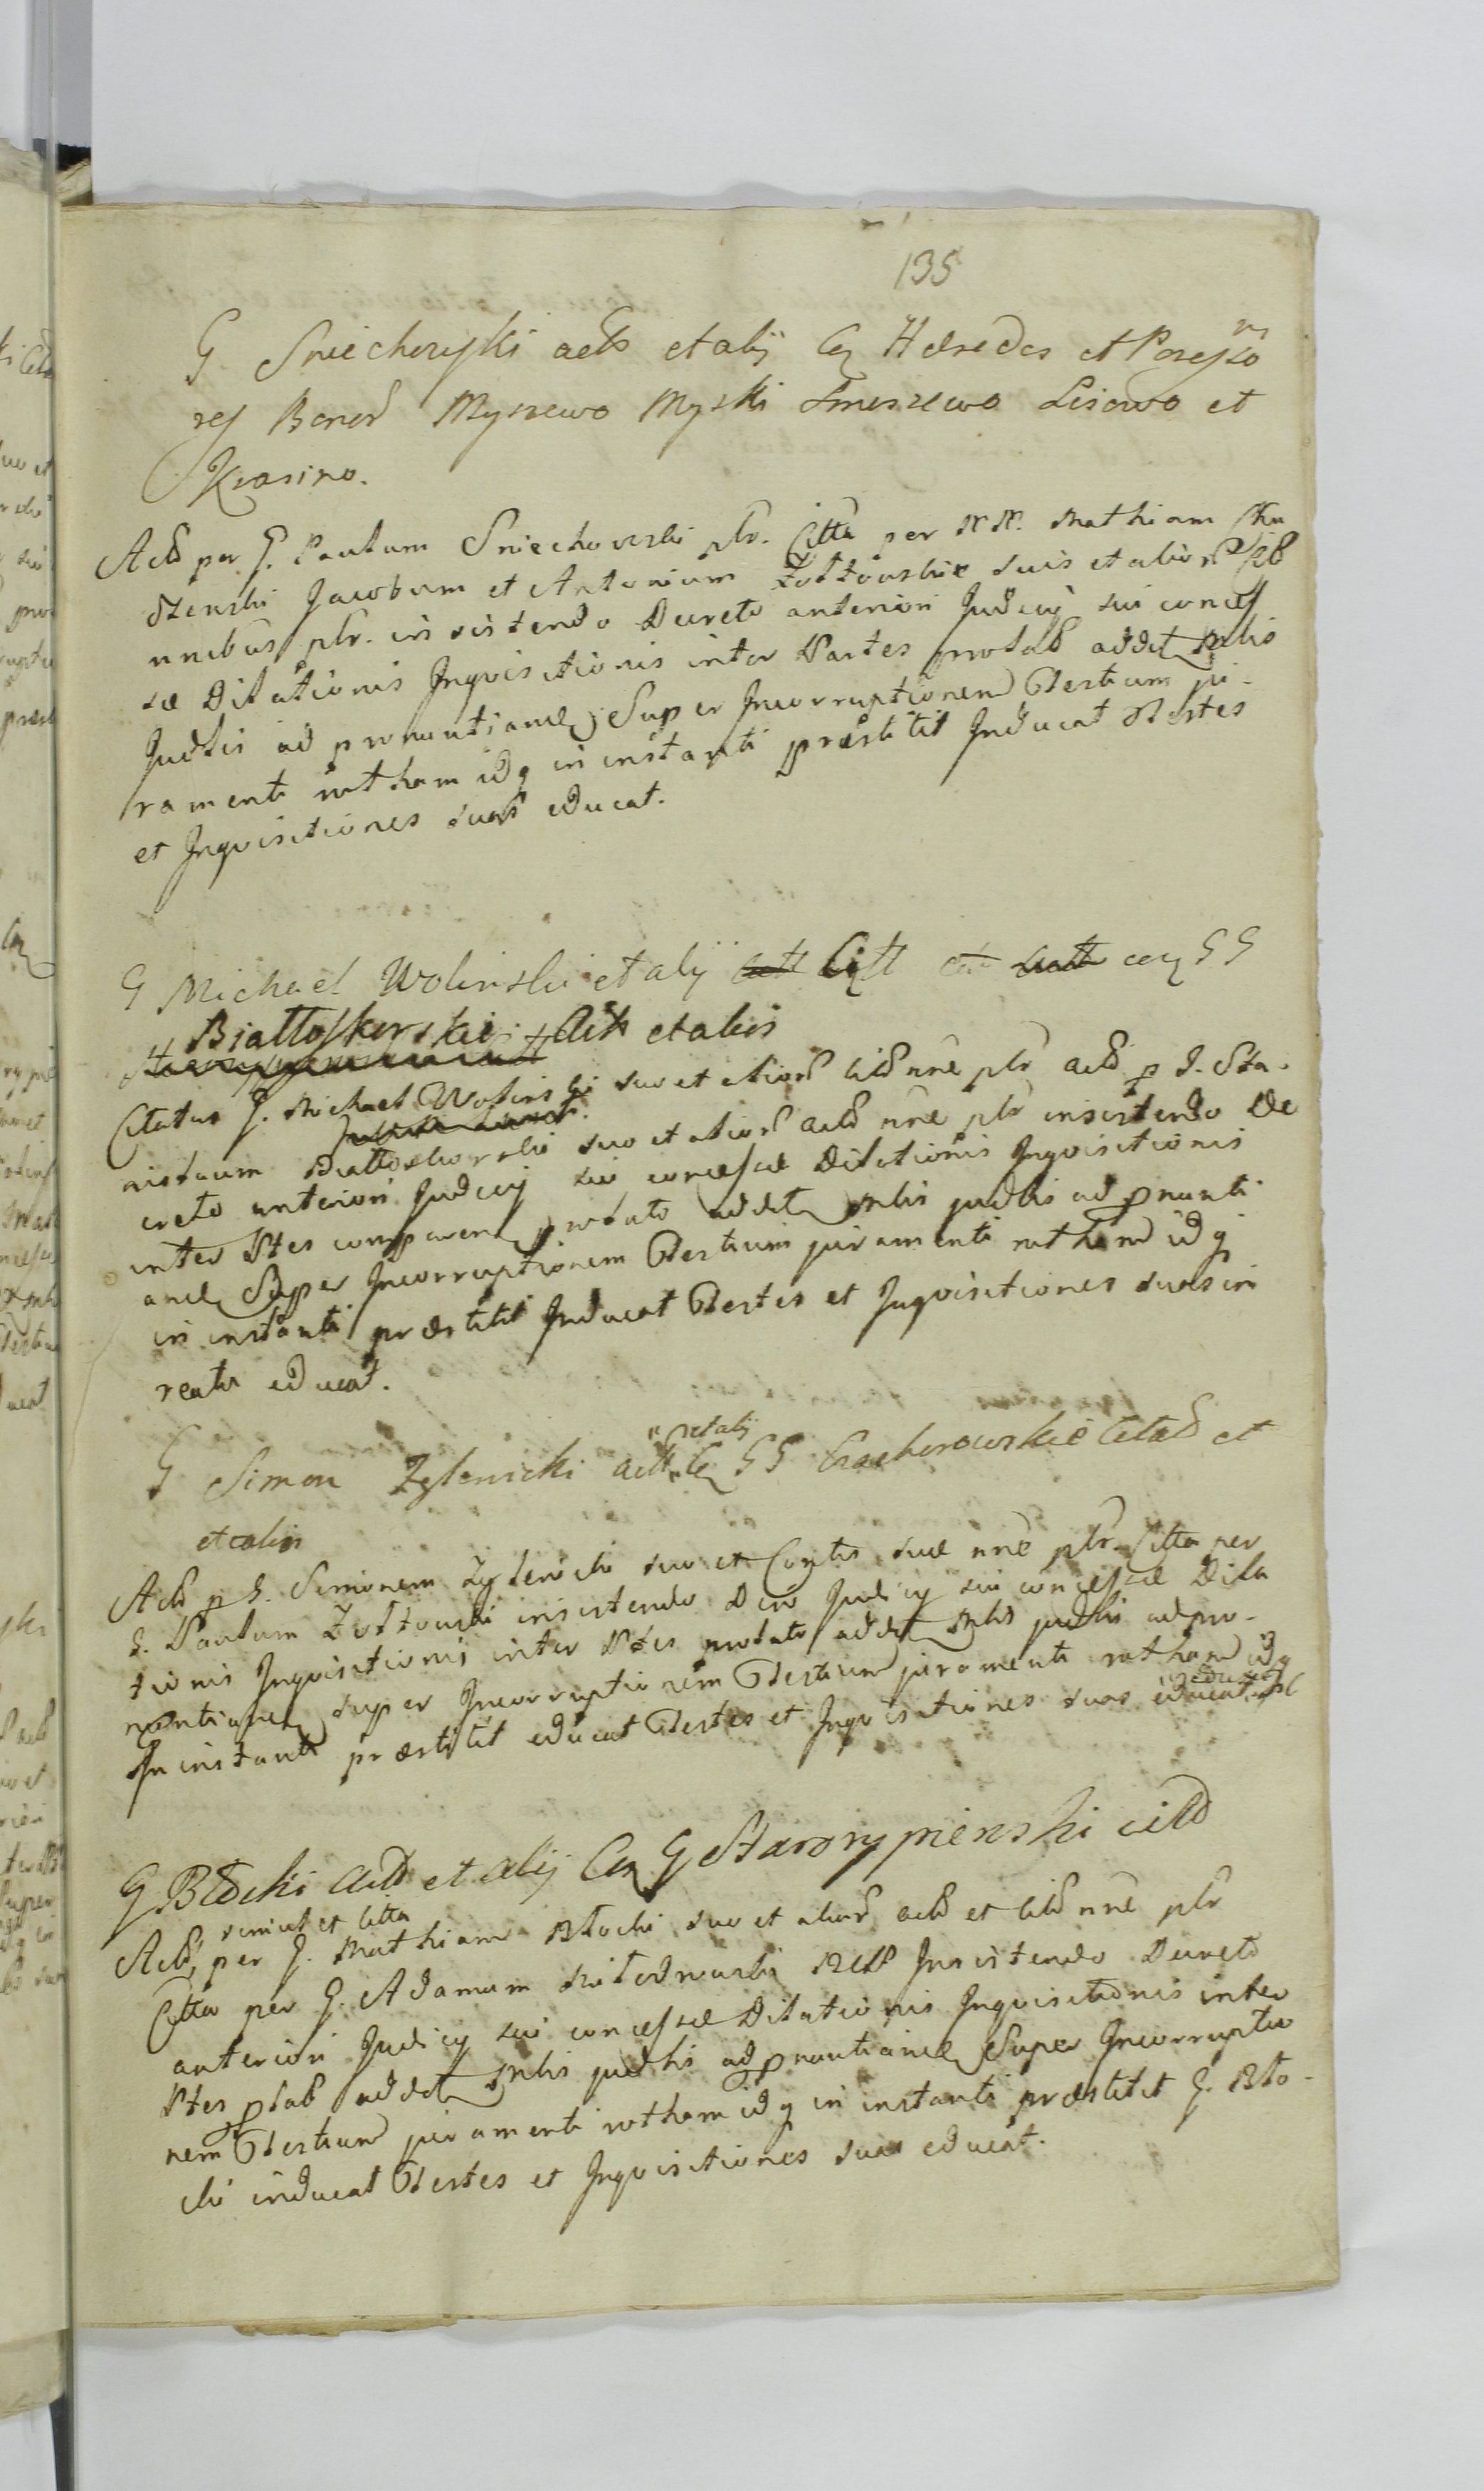 135
G Sniechoryski actr et alij Cą Hæredes et Poseſso
res Bonor Myszewo Myski Smoszewo Lisowo et
Krasino.
Actr per G. Paulum Sniechorski plr. Citta per NN. Mathiam Chu
dzenski Jacobum et Antonium Zołtowskie suis et alior Cit
nnibus plr. insistendo Decreto anteriori Judicij sui conceſ
sæ Dilationis Inquisitionis inter Partes probab addit
Judtis ad pronuntiand Super Incorruptionem Testium ju-
ramenti rotham idq in instanti præstitit Inducat Testes
et Inquisitiones suas educat.
G Michael Wolinski et alij Citt cą GG
Białłoskorskie Actr et alios
Citatus G. Michael Wolinski suo et alior citt nne plr actr p G. Sta-
nislaum Białłoskorski suo et alior actr nne plr insistendo De
creto anteriori Judicij sui conceſsæ Dilationis Inquisitionis
inter Ptes comparen probato addit judtis ad pnunti
and Super Incorruptionem Testium juramenti rotham idq
in instanti præstitit Inducat Testes et Inquisitiones suas in
reatu educat.
G Simon Zylenicki actt et alij Cą GG Czachorowskie Citat et
et alios
Actr p G. Simonem Zylenicki suo et Congtis suæ nne plr. Citta per
G. Paulum Zołtowski insistendo Dcro Judicij sui conceſsæ Dila
tionis Inquisitionis inter Ptes probato addit judtis ad pro-
nuntiand super Incorruptionem Testium juramenti rotham idq
In instanti præstitit educat Testes et Inquisitiones suas educat
G Błocki Actr et alij Cą G Starorypienski citt
Actr, per G. Mathiam Błocki suo et alior actr et citt nne plr
simul et citta
Citta per G. Adamum Insistendo Decreto
anteriori Judicij sui conceſsæ Dilationis Inquisitionis inter
Ptes pbab addit judtis ad pnuntiand Super Incorruptio
nem Testium juramenti rotham idq in instanti præstitit G. Bło-
cki inducat Testes et Inquisitiones suas educat.